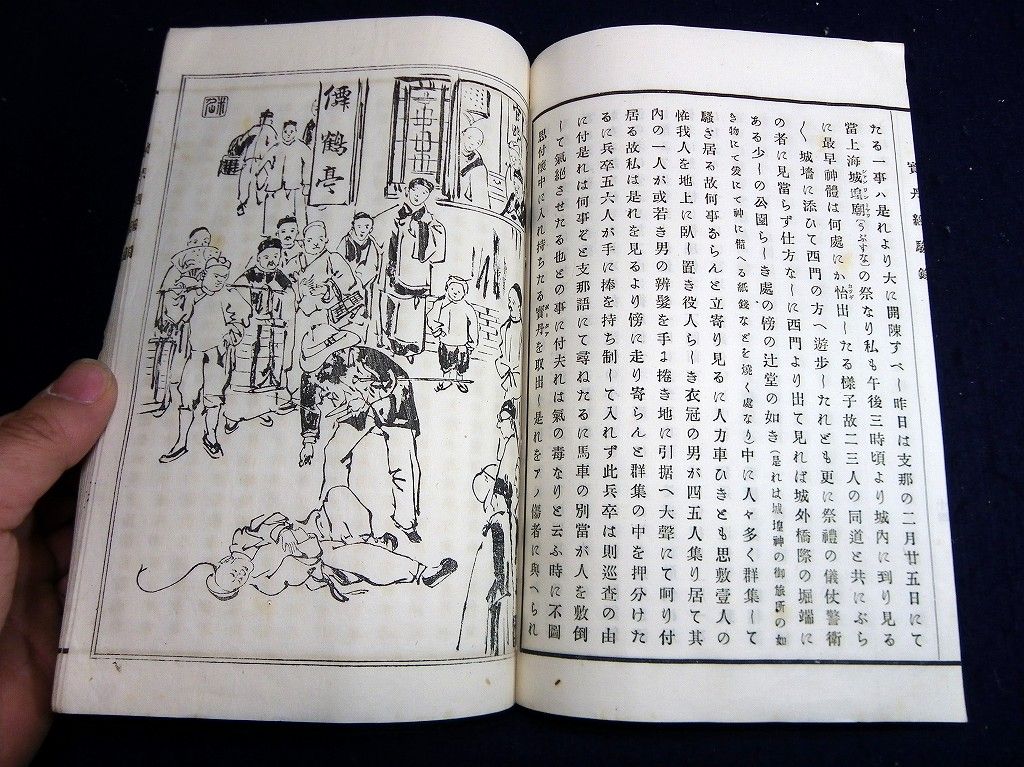 寶丹經驗録
たる一事ハ是れより大に開陳すべし昨日は支那の二月廿五日にて
當上海城隍廟(うぶすな)の祭なり私も午後三時頃より城内に到り見る
に最早神體は何處にか怡出したる樣子故二三人の同道と共にぶら
〱城墻に添ひて西門の方へ遊步したれども更に祭禮の儀仗警衛
の者に見當らず仕方なしに西門より出て見れば城外橋際の堀端に
ある少しの公園らしき處の傍の辻堂の如き(是れは城隍神の御旅所の如
き物にて爰にて神に備へる紙錢などを燒く處なり)中に人々多く群集して
騷ぎ居る故何事ならんと立寄り見るに人力車ひきとも思敷壹人の
怪我人を地上に臥し置き役人らしき衣冠の男が四五人集り居て其
内の一人が或若き男の辮髮を手に捲き地に引据へ大聲にて呵り付
居る故私は是れを見るより傍に走り寄らんと群集の中を押分けた
るに兵卒五六人が手に捧を持ち制して入れず此兵卒は則巡査の由
に付是れは何事ぞと支那語にて尋ねたるに馬車の別當が人を敷倒
して氣絶させたる也との事に付夫れは氣の毒なりと云ふ時に不圖
思付懷中に入れ持ちたる寶丹を取出し是れをアノ傷者に與へられ
僊鶴亭